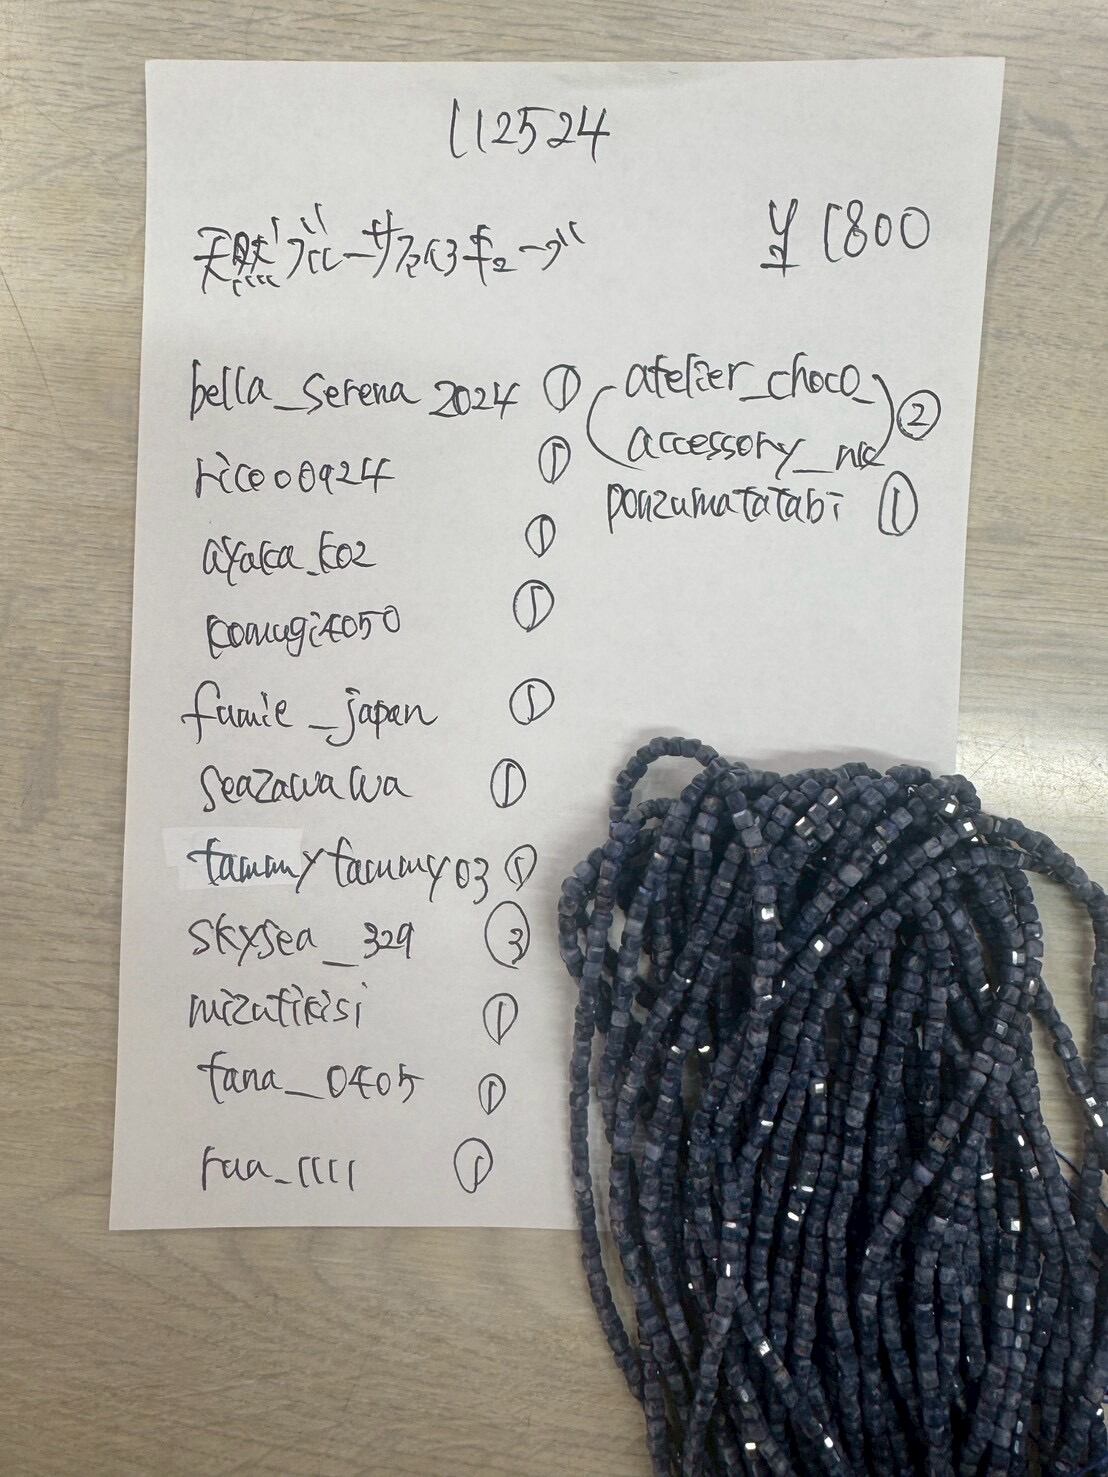 112524
天然ブルーサファイヤキューブ
¥1800
bella_serena2024 ①
rico00924 ①
ayaka_k02 ①
komugi4050 ①
fumie_japan ①
seazawawa ①
tammytammy03 ①
skysea_329 ③
mizutikisi ①
tana_0405 ①
raa_1111 ①
atelier_choco_
accessory_nk ②
ponzumatatabi ①